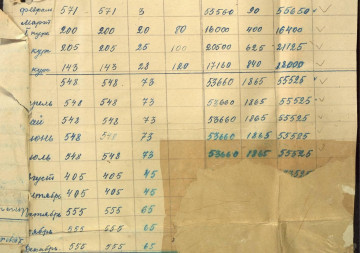 февраль 571 571 3 53560 20 55650
Март
I курс 200 200 20 80 16000 400 16400
курс 205 205 25 100 20500 625 21125
курс 143 143 28 120 17160 840 18000
548 548 73 53660 1865 55525
548 548 73 53660 1865 55525
ай 548 548 73 53660 1865 55525
юнь 548 548 73 53660 1865 55525
юль 548 548 73 53660 1865 55525
густ 405 405 45
нтябрь 405 405 45
октябрь 555 555 65
ябрь 555 555 65
декабрь 555 555 65